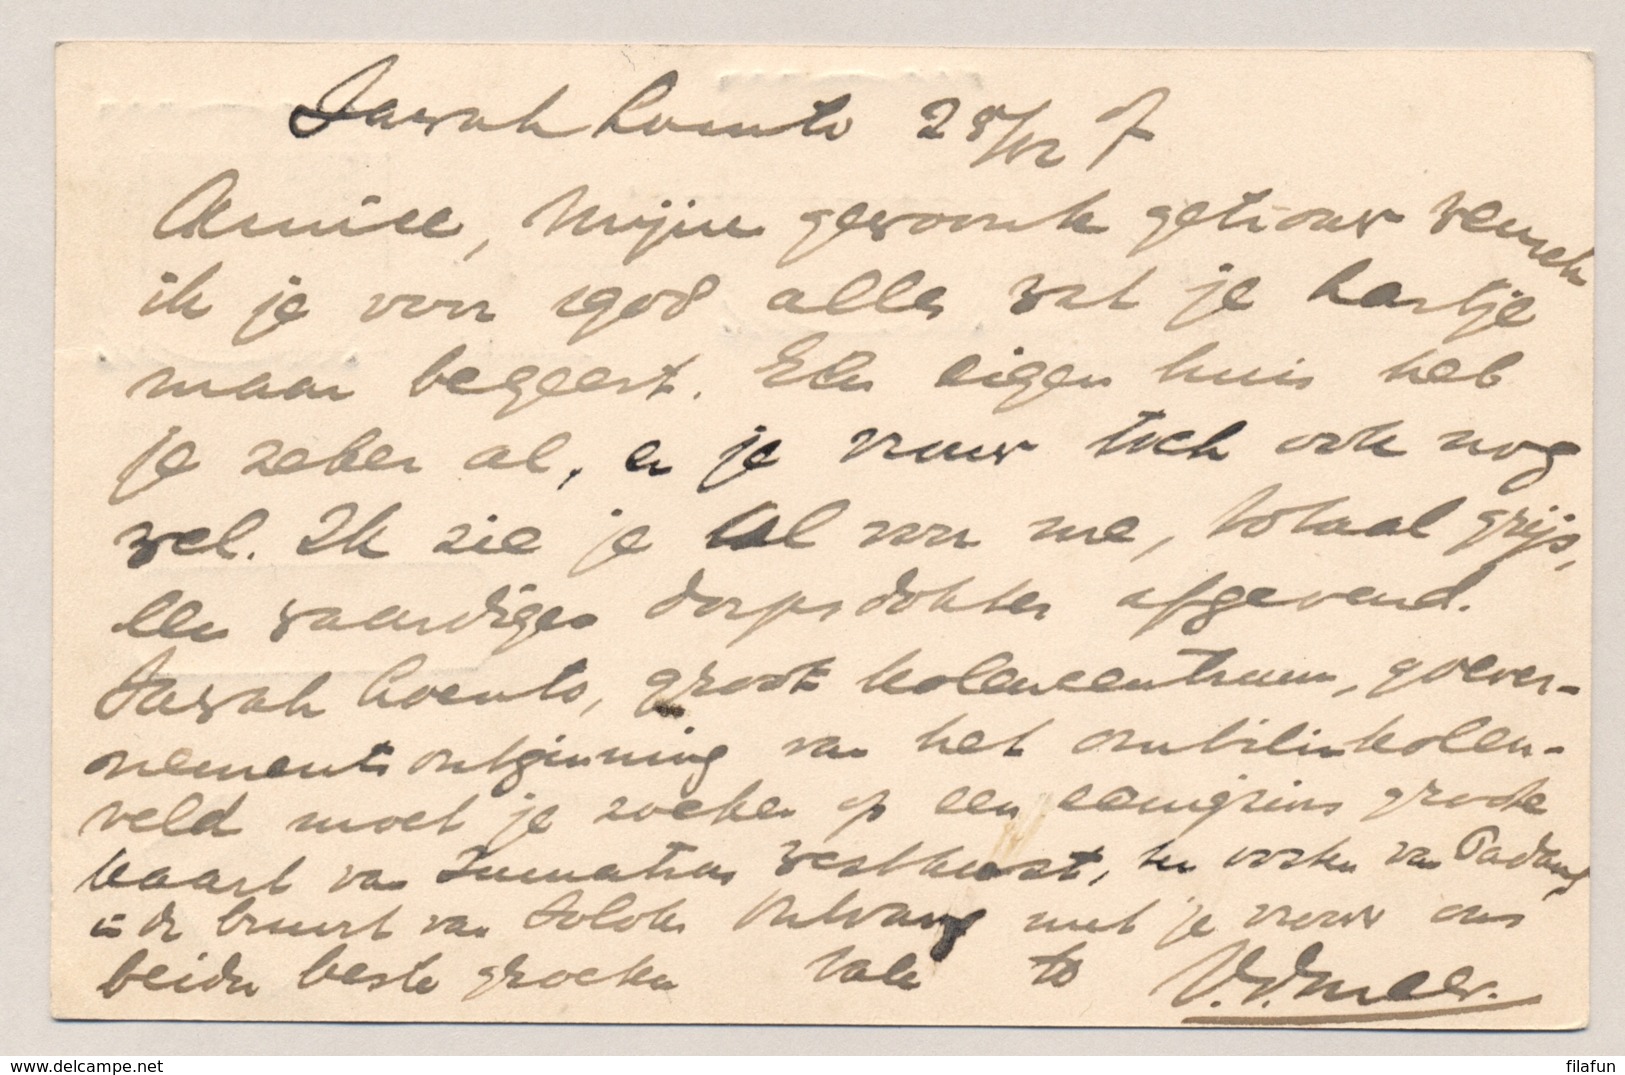 Sawah Loento 28/12 7
Amice, Mijne gewoonte getrouw wensch
ik je voor 1908 alles wat je hartje
maar begeert. Een eigen huis heb
je zeker al, en je vrouw toch ook nog
wel. Ik zie je al voor me, totaal grijs,
een waardigen dorpsdokter afgevend.
Sawah Loento, groot kolencentrum, goever-
nements ontginning van het ombilinkolen-
veld moet je zoeken op een eenigzins groote
kaart van Sumatras westkust, ten oosten van Padang
in de buurt van Solok. Ontvang met je vrouw ons
beider beste groeten tale to
V.d.Meer.
filafun
www.delcampe.net